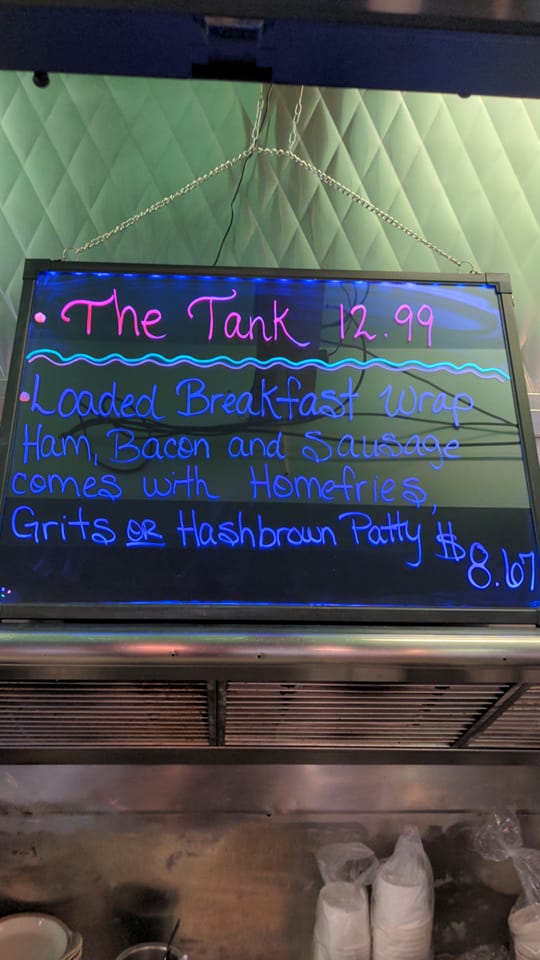 • The Tank 12.99
• Loaded Breakfast Wrap
Ham, Bacon and Sausage
comes with Homefries,
Grits OR Hashbrown Patty $8.67